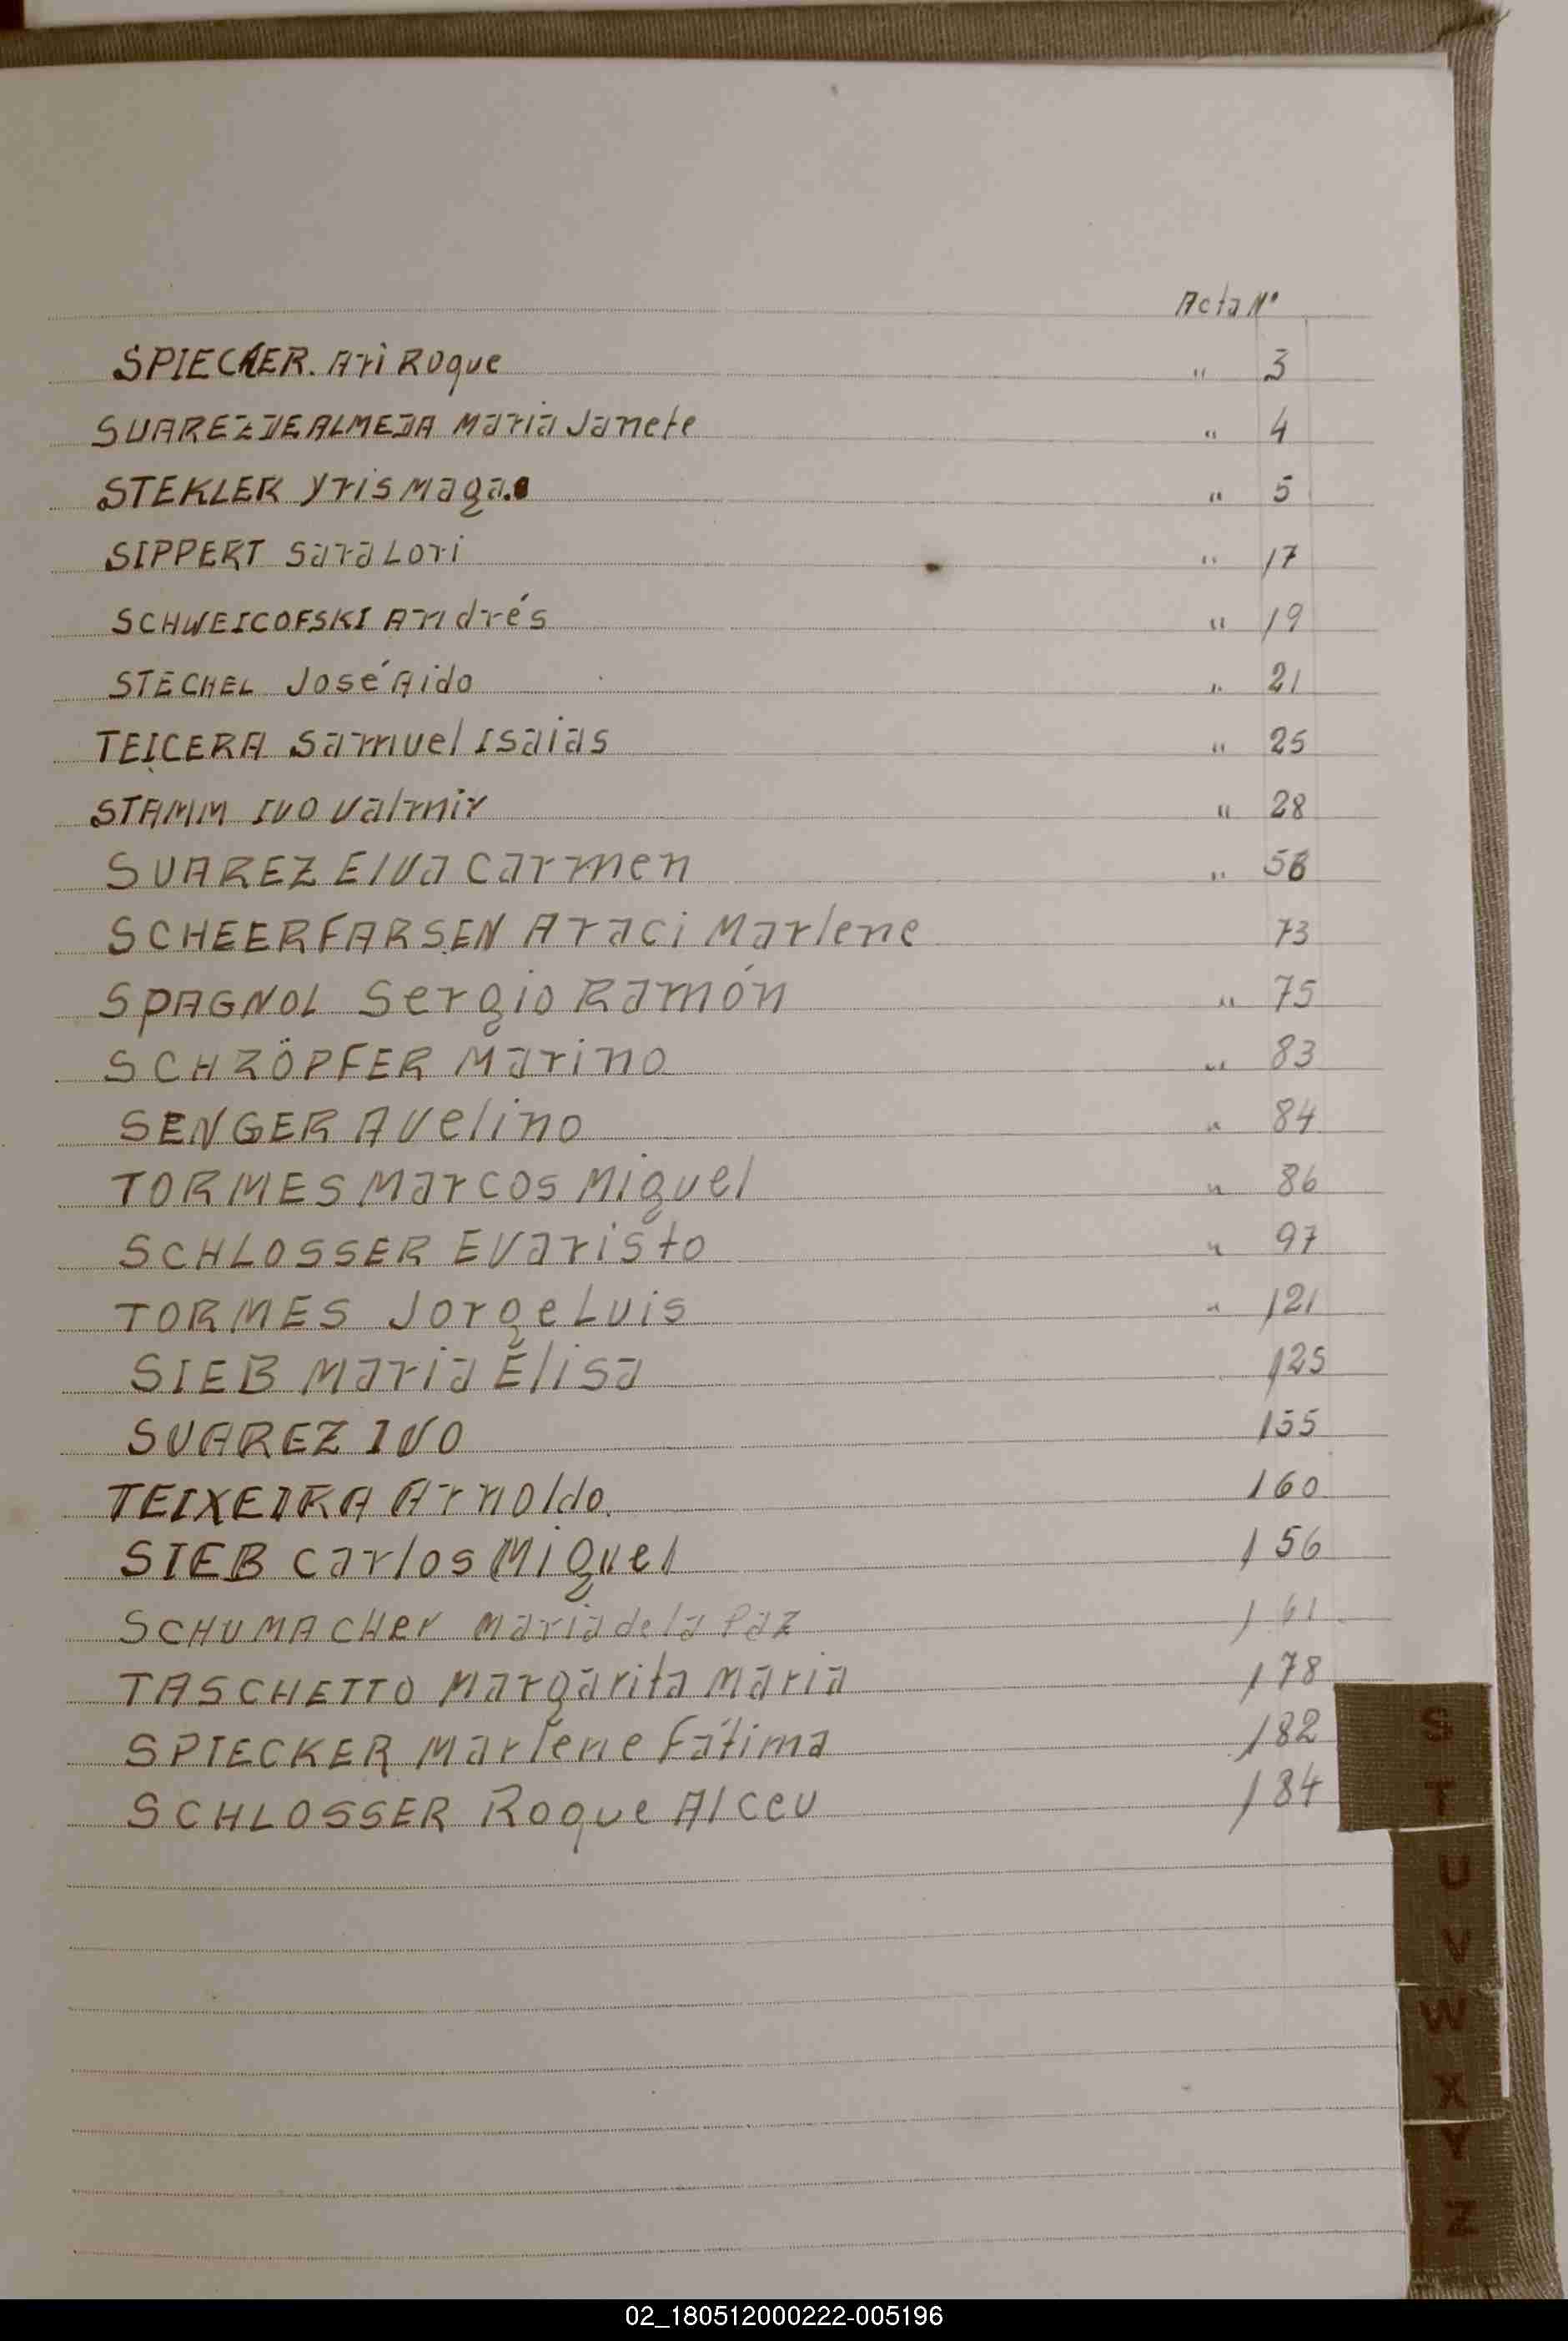 Acta Nº
SPIECKER. Ari Roque " 3
SUAREZ DE ALMEDA Maria Janete " 4
STEKLER Yris Maga. " 5
SIPPERT Sara Lori " 17
SCHWEICOFSKI Andrés " 19
STECHEL José Aido " 21
TEICERA Samuel Isaias " 25
STAMM IVO Valmir " 28
SUAREZ Elva Carmen " 58
SCHEERFARSEN Araci Marlene 73
SPAGNOL Sergio Ramón " 75
SCHRÖPFER Marino " 83
SENGER Avelino " 84
TORMES Marcos Miguel " 86
SCHLOSSER Evaristo " 97
TORMES Jorge Luis " 121
SIEB Maria Elisa 125
SUAREZ IVO 155
TEIXEIRA Arnoldo 160
SIEB Carlos Miguel 156
SCHUMACHER Maria de la Paz 161
TASCHETTO Margarita Maria 178
SPIECKER Marlene Fátima 182
SCHLOSSER Roque Alceu 184
S
T
U
V
W
X
Y
Z
02_180512000222-005196